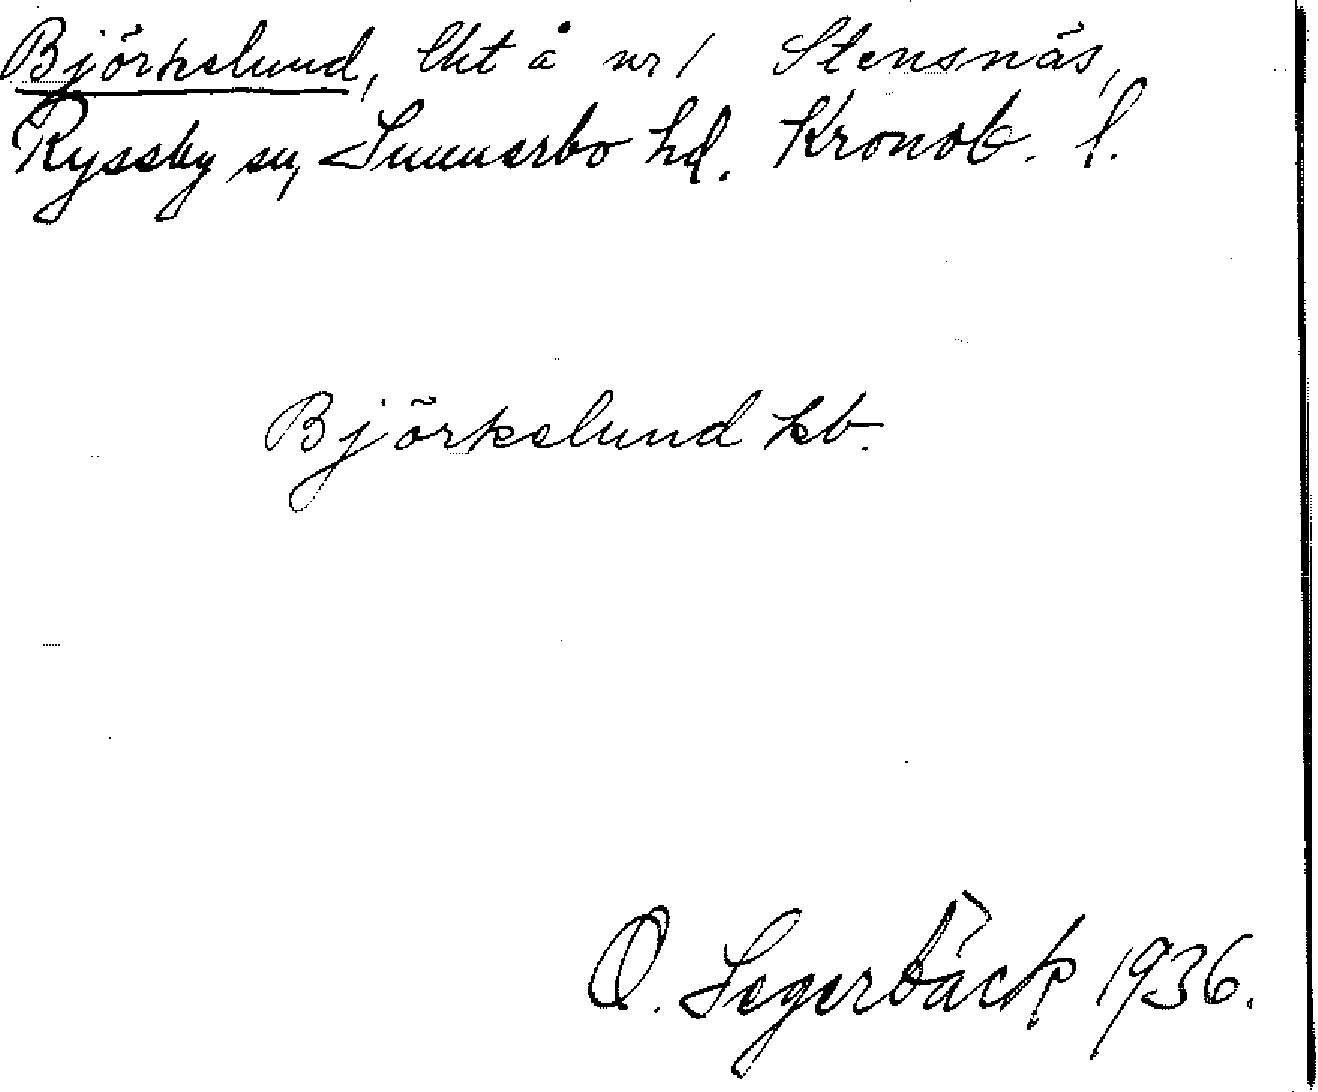 Björkelund, lht å nr 1 Stensnäs,
Ryssby sn, Sunnerbo hd. Kronob. l.
Björkelund kb.
O. Segerbäck 1936.